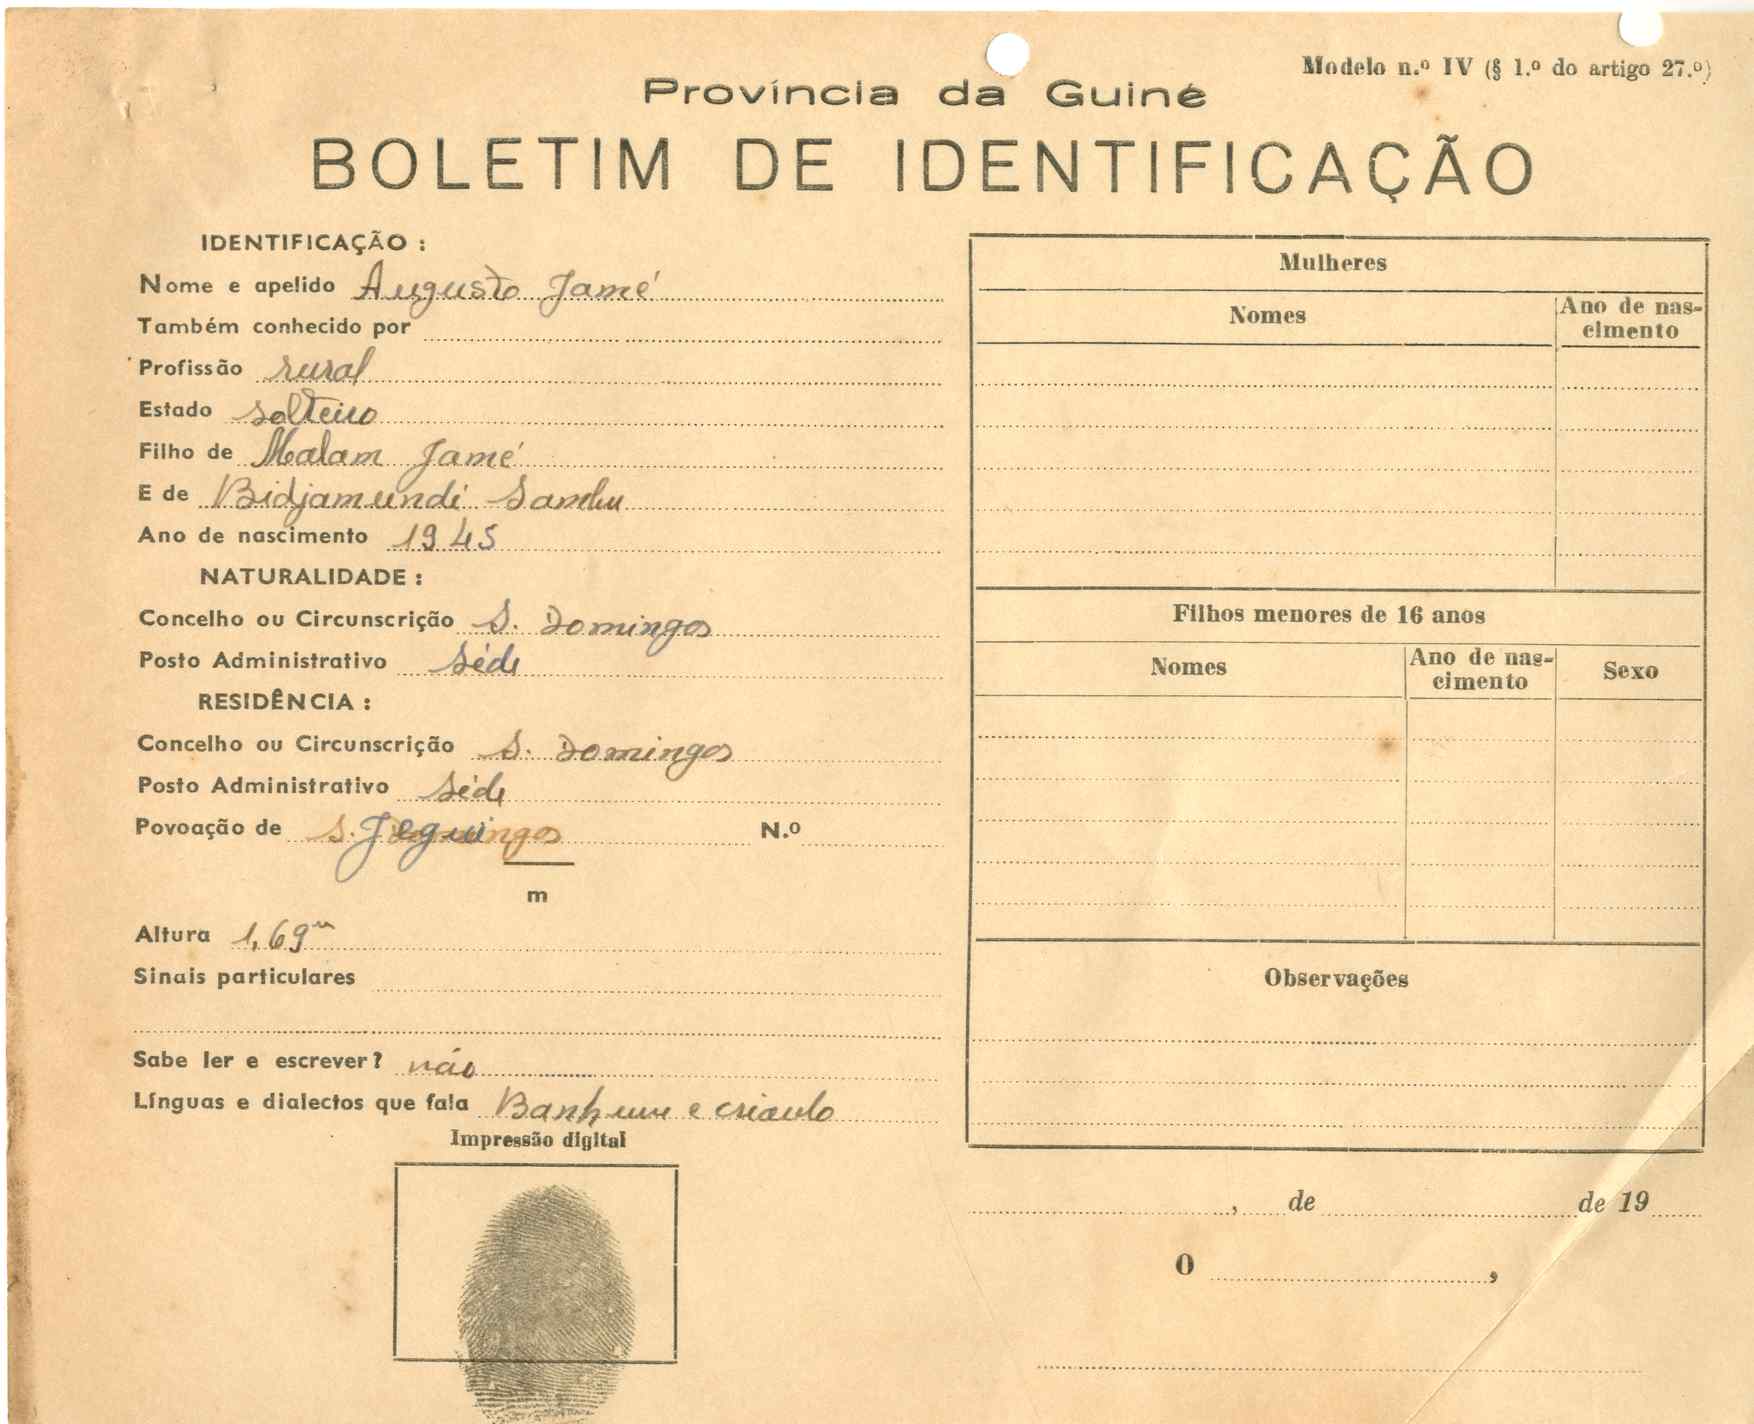 Modelo n.º IV (§ 1.º do artigo 27.º)
Província da Guiné
BOLETIM DE IDENTIFICAÇÃO
IDENTIFICAÇÃO :
Nome e apelido Augusto Jamé
Também conhecido por
Profissão rural
Estado solteiro
Filho de Malam Jamé
E de Bidjamundi Sambu
Ano de nascimento 1945
NATURALIDADE :
Concelho ou Circunscrição S. Domingos
Posto Administrativo Séde
RESIDÊNCIA :
Concelho ou Circunscrição S. Domingos
Posto Administrativo Séde
Povoação de S. Jegui N.º
m
Altura 1,69m
Sinais particulares
Sabe ler e escrever? não
Línguas e dialectos que fala Banhum e crioulo
Impressão digital
Mulheres
Nomes
Ano de nas-
cimento
Filhos menores de 16 anos
Nomes
Ano de nas-
cimento
Sexo
Observações
, de de 19
O ,